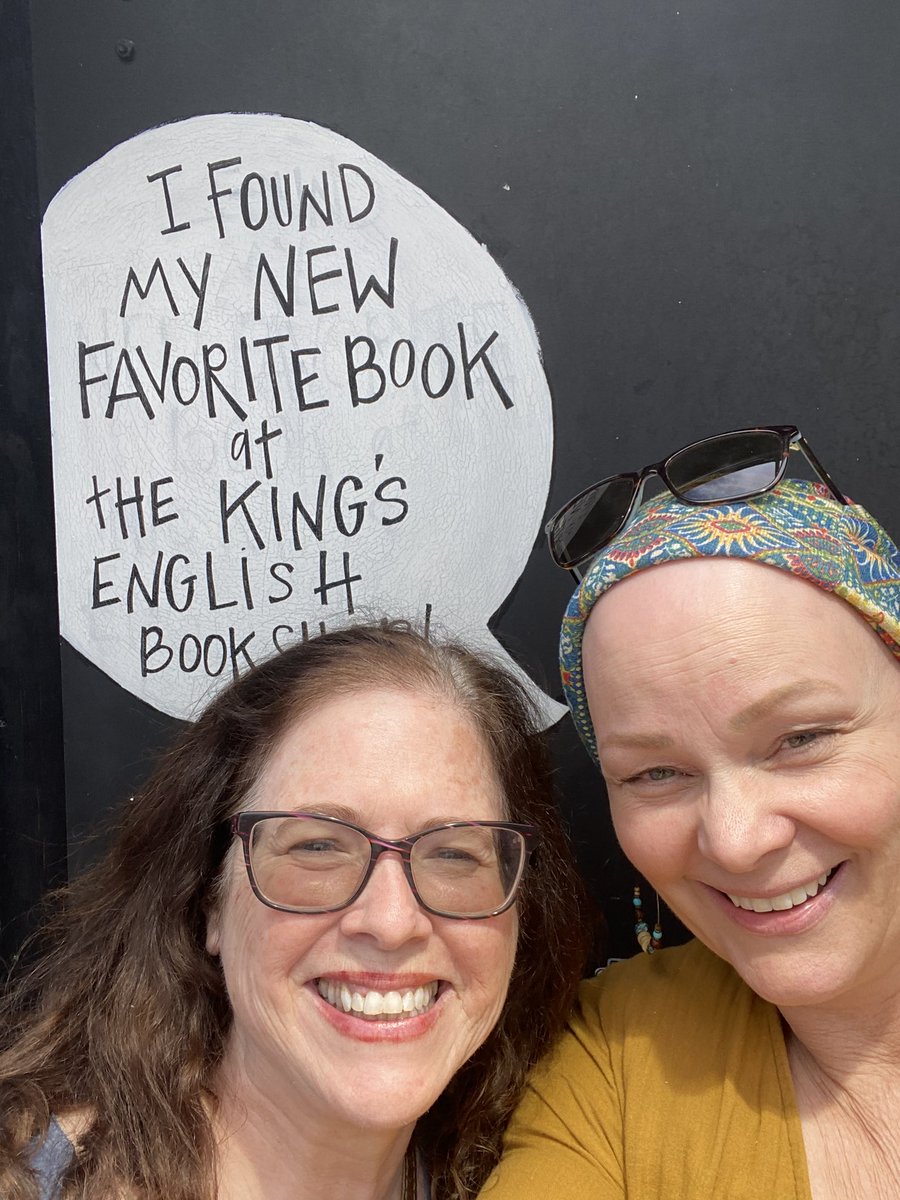 I FOUND
MY NEW
FAVORITE BOOK
at
tHE KING'S
ENGLiSH
BOOK